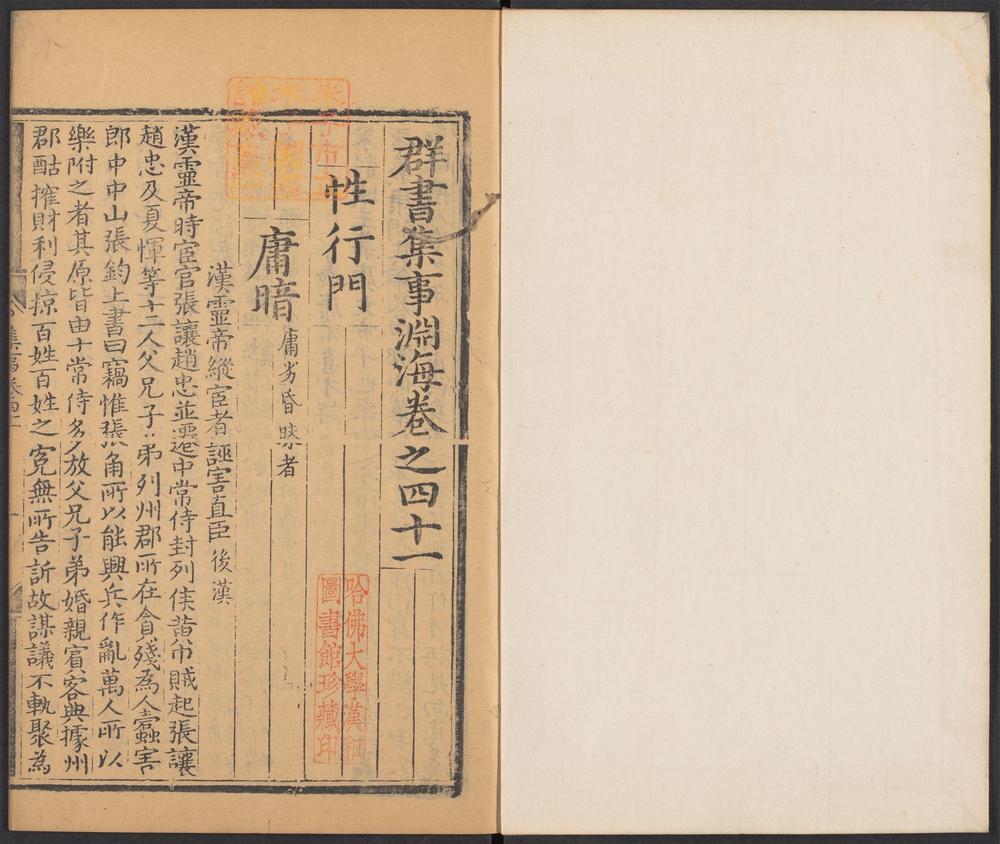 群書集事淵海卷之四十一
性行門
庸暗 庸劣昏昧者
漢靈帝縱宦者誣害直臣 後漢
漢靈帝時宦官張讓趙忠並遷中常侍封列侯黃巾賊起張讓
趙忠及夏惲等十二人父兄子弟列州郡所在貪殘為人蠹害
郎中中山張鈞上書曰竊惟張角所以能興兵作亂萬人所以
樂附之者其原皆由十常侍多放父兄子弟婚親賓客典據州
郡酤搉財利侵掠百姓百姓之寃無所告訴故謀議不軌聚為
哈佛大學漢和
圖書館珍藏印